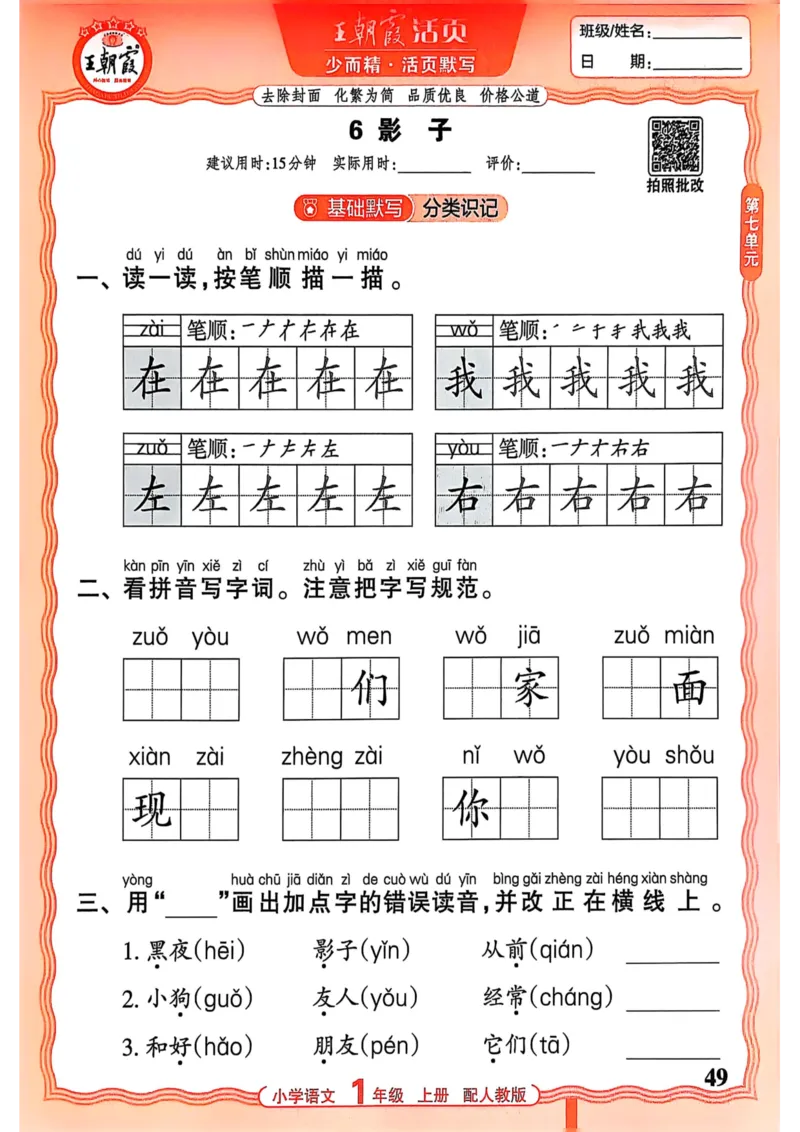 王朝霞
王朝霞 活页
少而精·活页默写
班级/姓名:
日 期:
去除封面 化繁为简 品质优良 价格公道
6 影 子
建议用时:15分钟 实际用时: 评价:
拍照批改
基础默写 分类识记
第七单元
dú yi dú àn bǐ shùn miáo yi miáo
一、读一读,按笔顺描一描。
zài 笔顺:一ナナ在在在
在 在 在 在 在
wǒ 笔顺:我我我
我 我 我 我 我
zuǒ 笔顺:一ナ左左左
左 左 左 左 左
yòu 笔顺:一ナ右右
右 右 右 右 右
kàn pīn yīn xiě zì cí zhù yì bǎ zì xiě guī fàn
二、看拼音写字词。注意把字写规范。
zuǒ yòu wǒ men wǒ jiā zuǒ miàn
们 家 面
xiàn zài zhèng zài nǐ wǒ yòu shǒu
现 你
yòng huà chū jiā diǎn zì de cuò wù dú yīn bìng gǎi zhèng zài héng xiàn shàng
三、用“____”画出加点字的错误读音,并改正在横线上。
1. 黑夜(hēi) 影子(yǐn) 从前(qián)
2. 小狗(guǒ) 友人(yǒu) 经常(cháng)
3. 和好(hǎo) 朋友(pén) 它们(tā)
49
小学语文 1年级 上册 配人教版